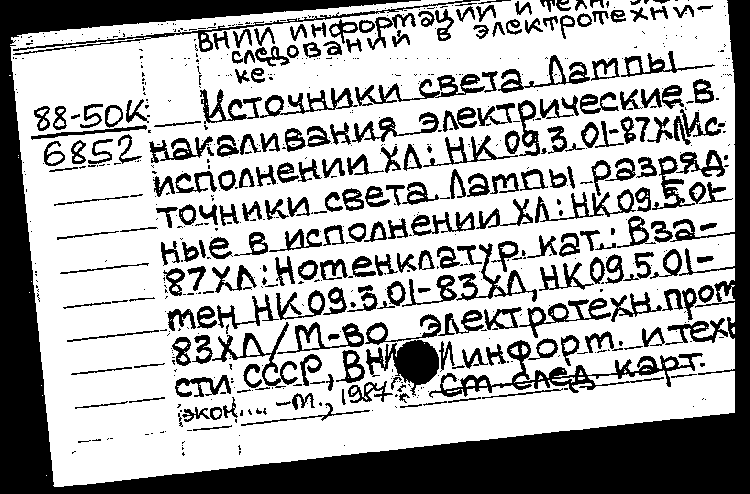 ВНИИ информации и техн. 
следований в электротехни-
ке.
88-50К
6852
Источники света. Лампы
накаливания электрические в
исполнении ХЛ: НК 09.3.01-87ХЛ Ис-
точники света. Лампы разряд-
ные в исполнении ХЛ: НК 09.5.01-
87ХЛ: Номенклатур. кат.: Вза-
мен НК 09.3.01-83ХЛ, НК 09.5.01-
83ХЛ/М-во электротехн. пром
сти СССР, ВНИИ информ. и техн
экон.... -М., 1987
См. след. карт.